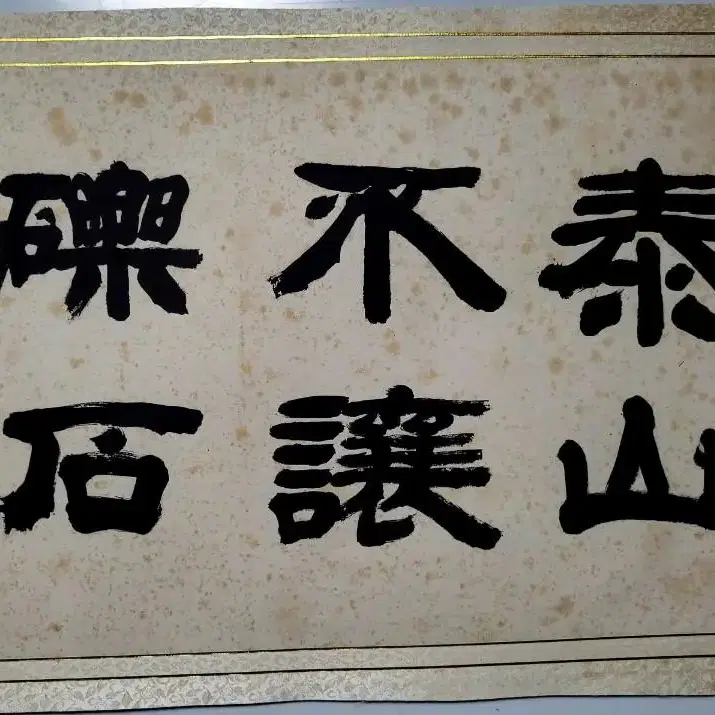 泰山
不讓
礫石